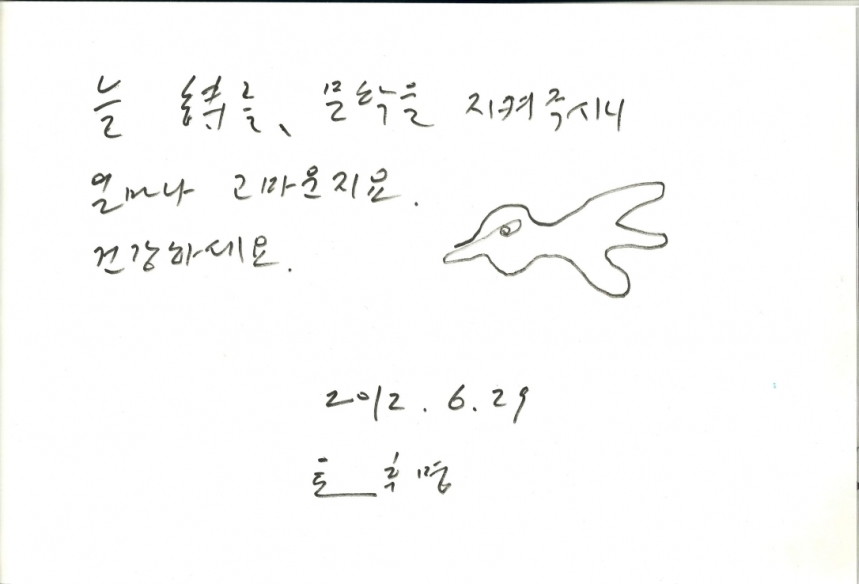 늘 문학을 지켜주시니
얼마나 고마운지요.
건강하세요.
2012. 6. 29
윤후명